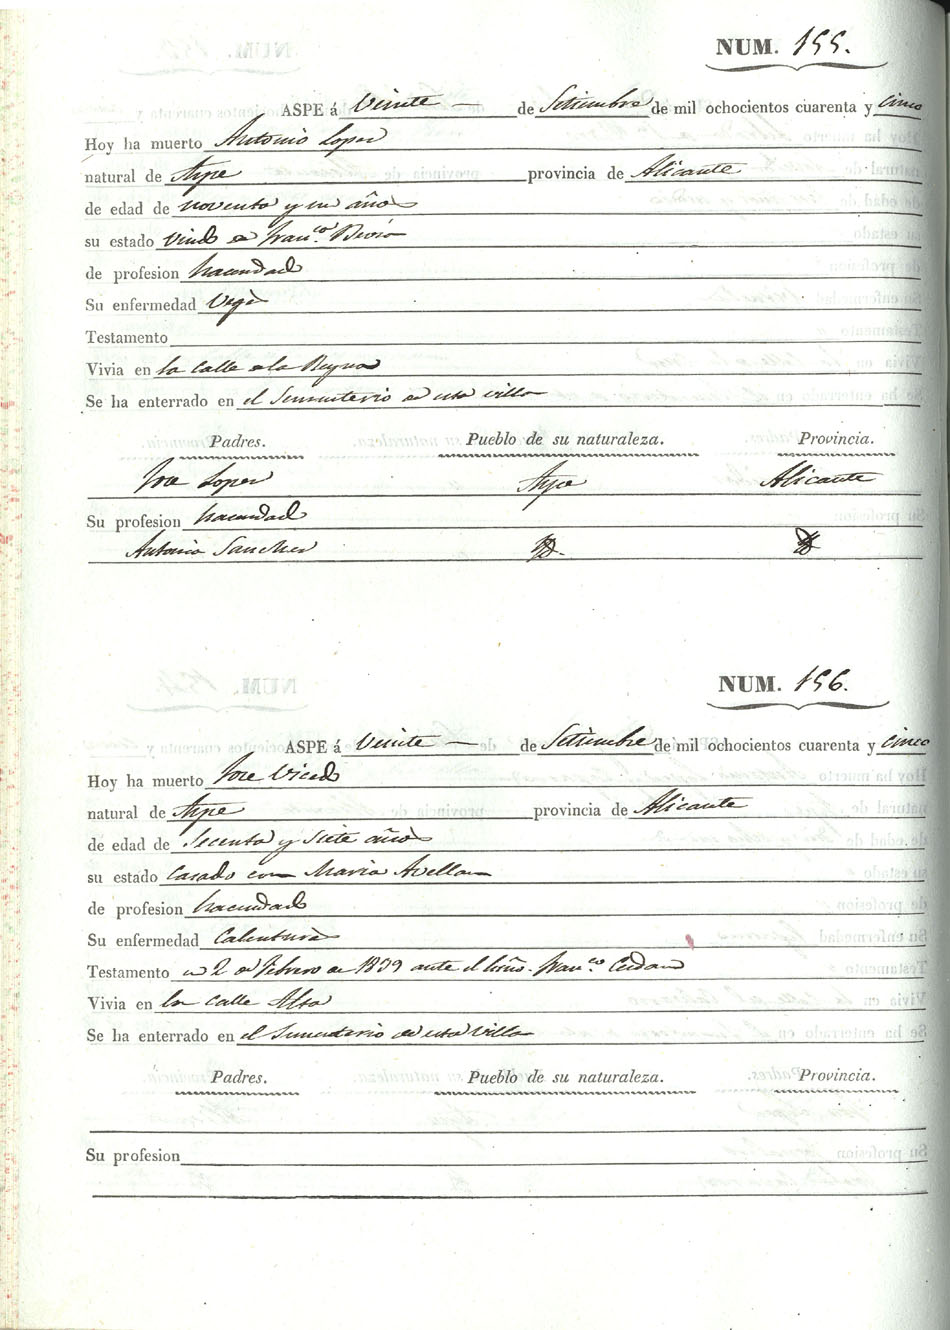 NUM. 155.
ASPE á Veinte — de Setiembre de mil ochocientos cuarenta y cinco
Hoy ha muerto Antonio Lopez
natural de Aspe provincia de Alicante
de edad de noventa y un años
su estado Viudo de Fran.ca
de profesion hacendado
Su enfermedad Vegez
Testamento
Vivia en la Calle de la Reyna
Se ha enterrado en el Sementerio de esta villa
Padres. Pueblo de su naturaleza. Provincia.
Jose Lopez Aspe Alicante
Su profesion hacendado
Antonia Sanchez Yd. Yd.
NUM. 156.
ASPE á Veinte — de Setiembre de mil ochocientos cuarenta y cinco
Hoy ha muerto Jose Vicedo
natural de Aspe provincia de Alicante
de edad de Secenta y Siete años
su estado Casado con Maria Avellan
de profesion hacendado
Su enfermedad Calentura
Testamento en 2 de Febrero de 1839 ante el Fran.co
Vivia en la Calle Alta
Se ha enterrado en el Sementerio de esta Villa
Padres. Pueblo de su naturaleza. Provincia.
Su profesion